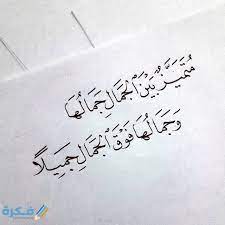 مُتَمَيِّزٌ بَيْنَ الْجَمَالِ جَمَالُهَا
وَجَمَالُهَا فَوْقَ الْجَمَالِ جَمِيلًا
فكرة